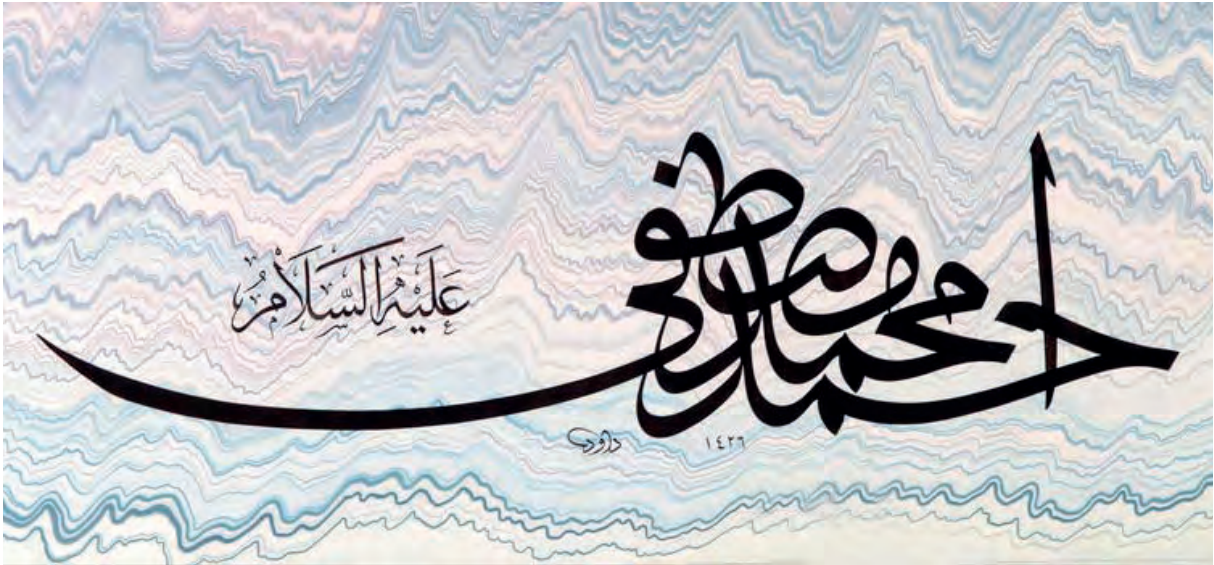 احمد محمد مصطفى
عَلَيْهِ السَّلَامُ
داود
١٤٢٦